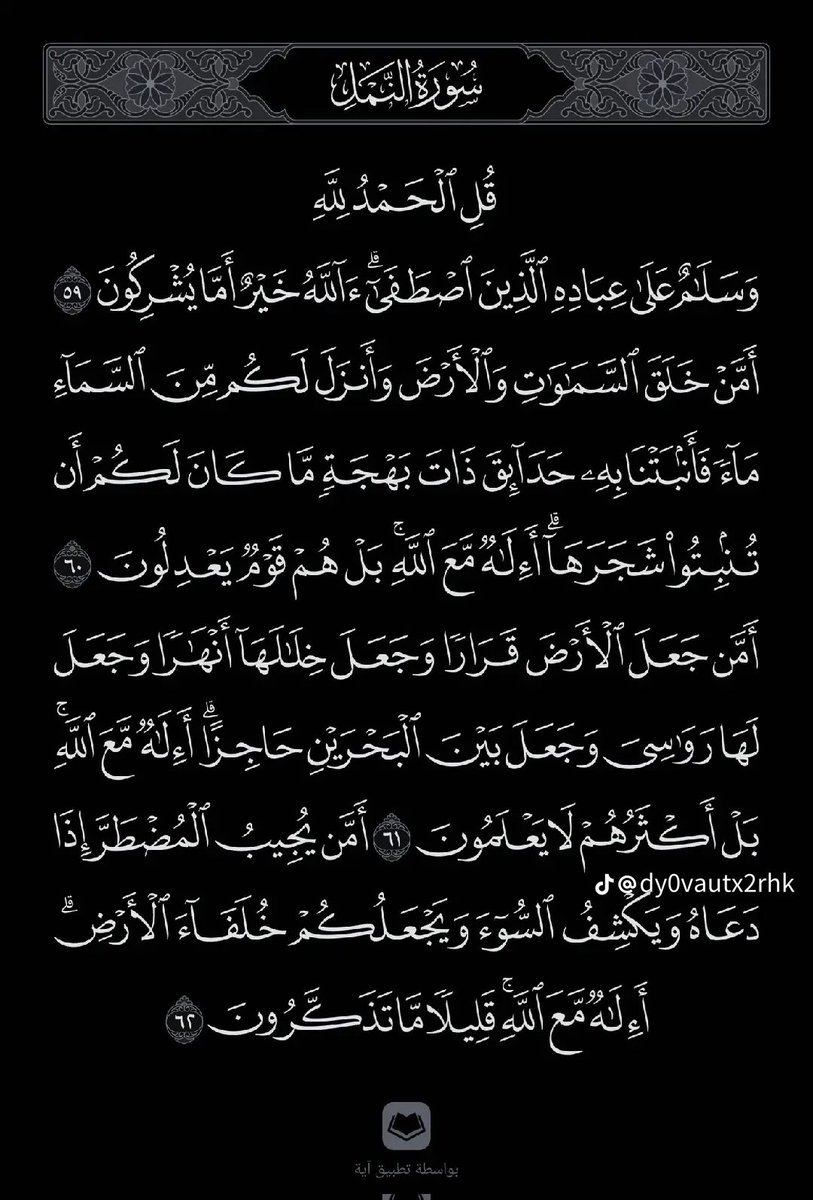 سُورَةُ النَّمْلِ
قُلِ ٱلْحَمْدُ لِلَّهِ
وَسَلَـٰمٌ عَلَىٰ عِبَادِهِ ٱلَّذِينَ ٱصْطَفَىٰٓ ۗ ءَآللَّهُ خَيْرٌ أَمَّا يُشْرِكُونَ ٥٩
أَمَّنْ خَلَقَ ٱلسَّمَـٰوَٰتِ وَٱلْأَرْضَ وَأَنزَلَ لَكُم مِّنَ ٱلسَّمَآءِ
مَآءً فَأَنۢبَتْنَا بِهِۦ حَدَآئِقَ ذَاتَ بَهْجَةٍ مَّا كَانَ لَكُمْ أَن
تُنۢبِتُوا۟ شَجَرَهَآ ۗ أَءِلَـٰهٌ مَّعَ ٱللَّهِ ۚ بَلْ هُمْ قَوْمٌ يَعْدِلُونَ ٦٠
أَمَّن جَعَلَ ٱلْأَرْضَ قَرَارًا وَجَعَلَ خِلَـٰلَهَآ أَنْهَـٰرًا وَجَعَلَ
لَهَا رَوَٰسِىَ وَجَعَلَ بَيْنَ ٱلْبَحْرَيْنِ حَاجِزًا ۗ أَءِلَـٰهٌ مَّعَ ٱللَّهِ ۚ
بَلْ أَكْثَرُهُمْ لَا يَعْلَمُونَ ٦١ أَمَّن يُجِيبُ ٱلْمُضْطَرَّ إِذَا
@dy0vautx2rhk
دَعَاهُ وَيَكْشِفُ ٱلسُّوٓءَ وَيَجْعَلُكُمْ خُلَفَآءَ ٱلْأَرْضِ ۗ
أَءِلَـٰهٌ مَّعَ ٱللَّهِ ۚ قَلِيلًا مَّا تَذَكَّرُونَ ٦٢
بواسطة تطبيق آية